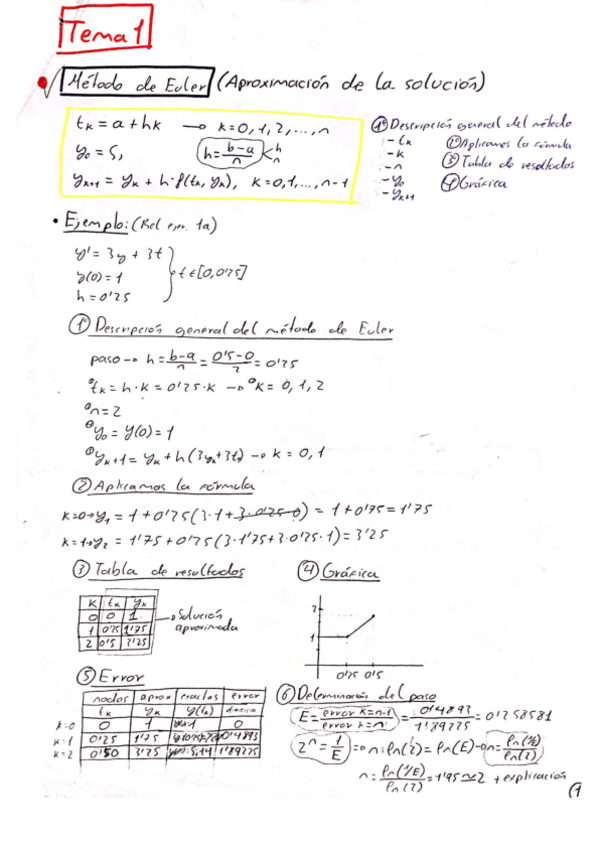 Tema 1
Método de Euler (Aproximación de la solución)
tk = a + hk → k=0,1,2,...,n
y0 = S, h = b-a/n
yk+1 = yk + h·f(tk, yk), k=0,1,...,n-1
1º Descripción general del método
- tk
- k
- n
- y0
- yk+1
2º Aplicamos la fórmula
3º Tabla de resultados
4º Gráfica
• Ejemplo: (Rel ejer. 1a)
y' = 3y + 3t
y(0) = 1
h = 0'25
t ∈ [0,0'25]
1º Descripción general del método de Euler
paso → h = b-a/n = 0'5-0/2 = 0'25
tk = h·k = 0'25·k → k = 0,1,2
n=2
y0 = y(0) = 1
yk+1 = yk + h(3yk+3t) → k = 0,1
2 Aplicamos la fórmula
k=0→y1 = 1+0'25(3·1+3·0'25·0) = 1+0'75 = 1'75
k=1→y2 = 1'75+0'25(3·1'75+3·0'25·1) = 3'25
3 Tabla de resultados
k tk yk
0 0 1
1 0'25 1'75
2 0'5 3'25
→ Solución aproximada
4 Gráfica
2
1
0'25 0'5
5 Error
nodos aprox exactas error
tk yk y(tk)
k=0 0 1 1 0
k=1 0'25 1'75 0'4893
k=2 0'50 3'25 5,14 1'89225
6 Determinación del paso
E = error k=n-1/error k=n = 0'4893/1'89225 = 0'258581
2^n = 1/E => n·ln(2) = ln(E) → n = ln(1/E)/ln(2)
n = ln(1/E)/ln(2) = 1'95 ≃ 2 + explicación
(1